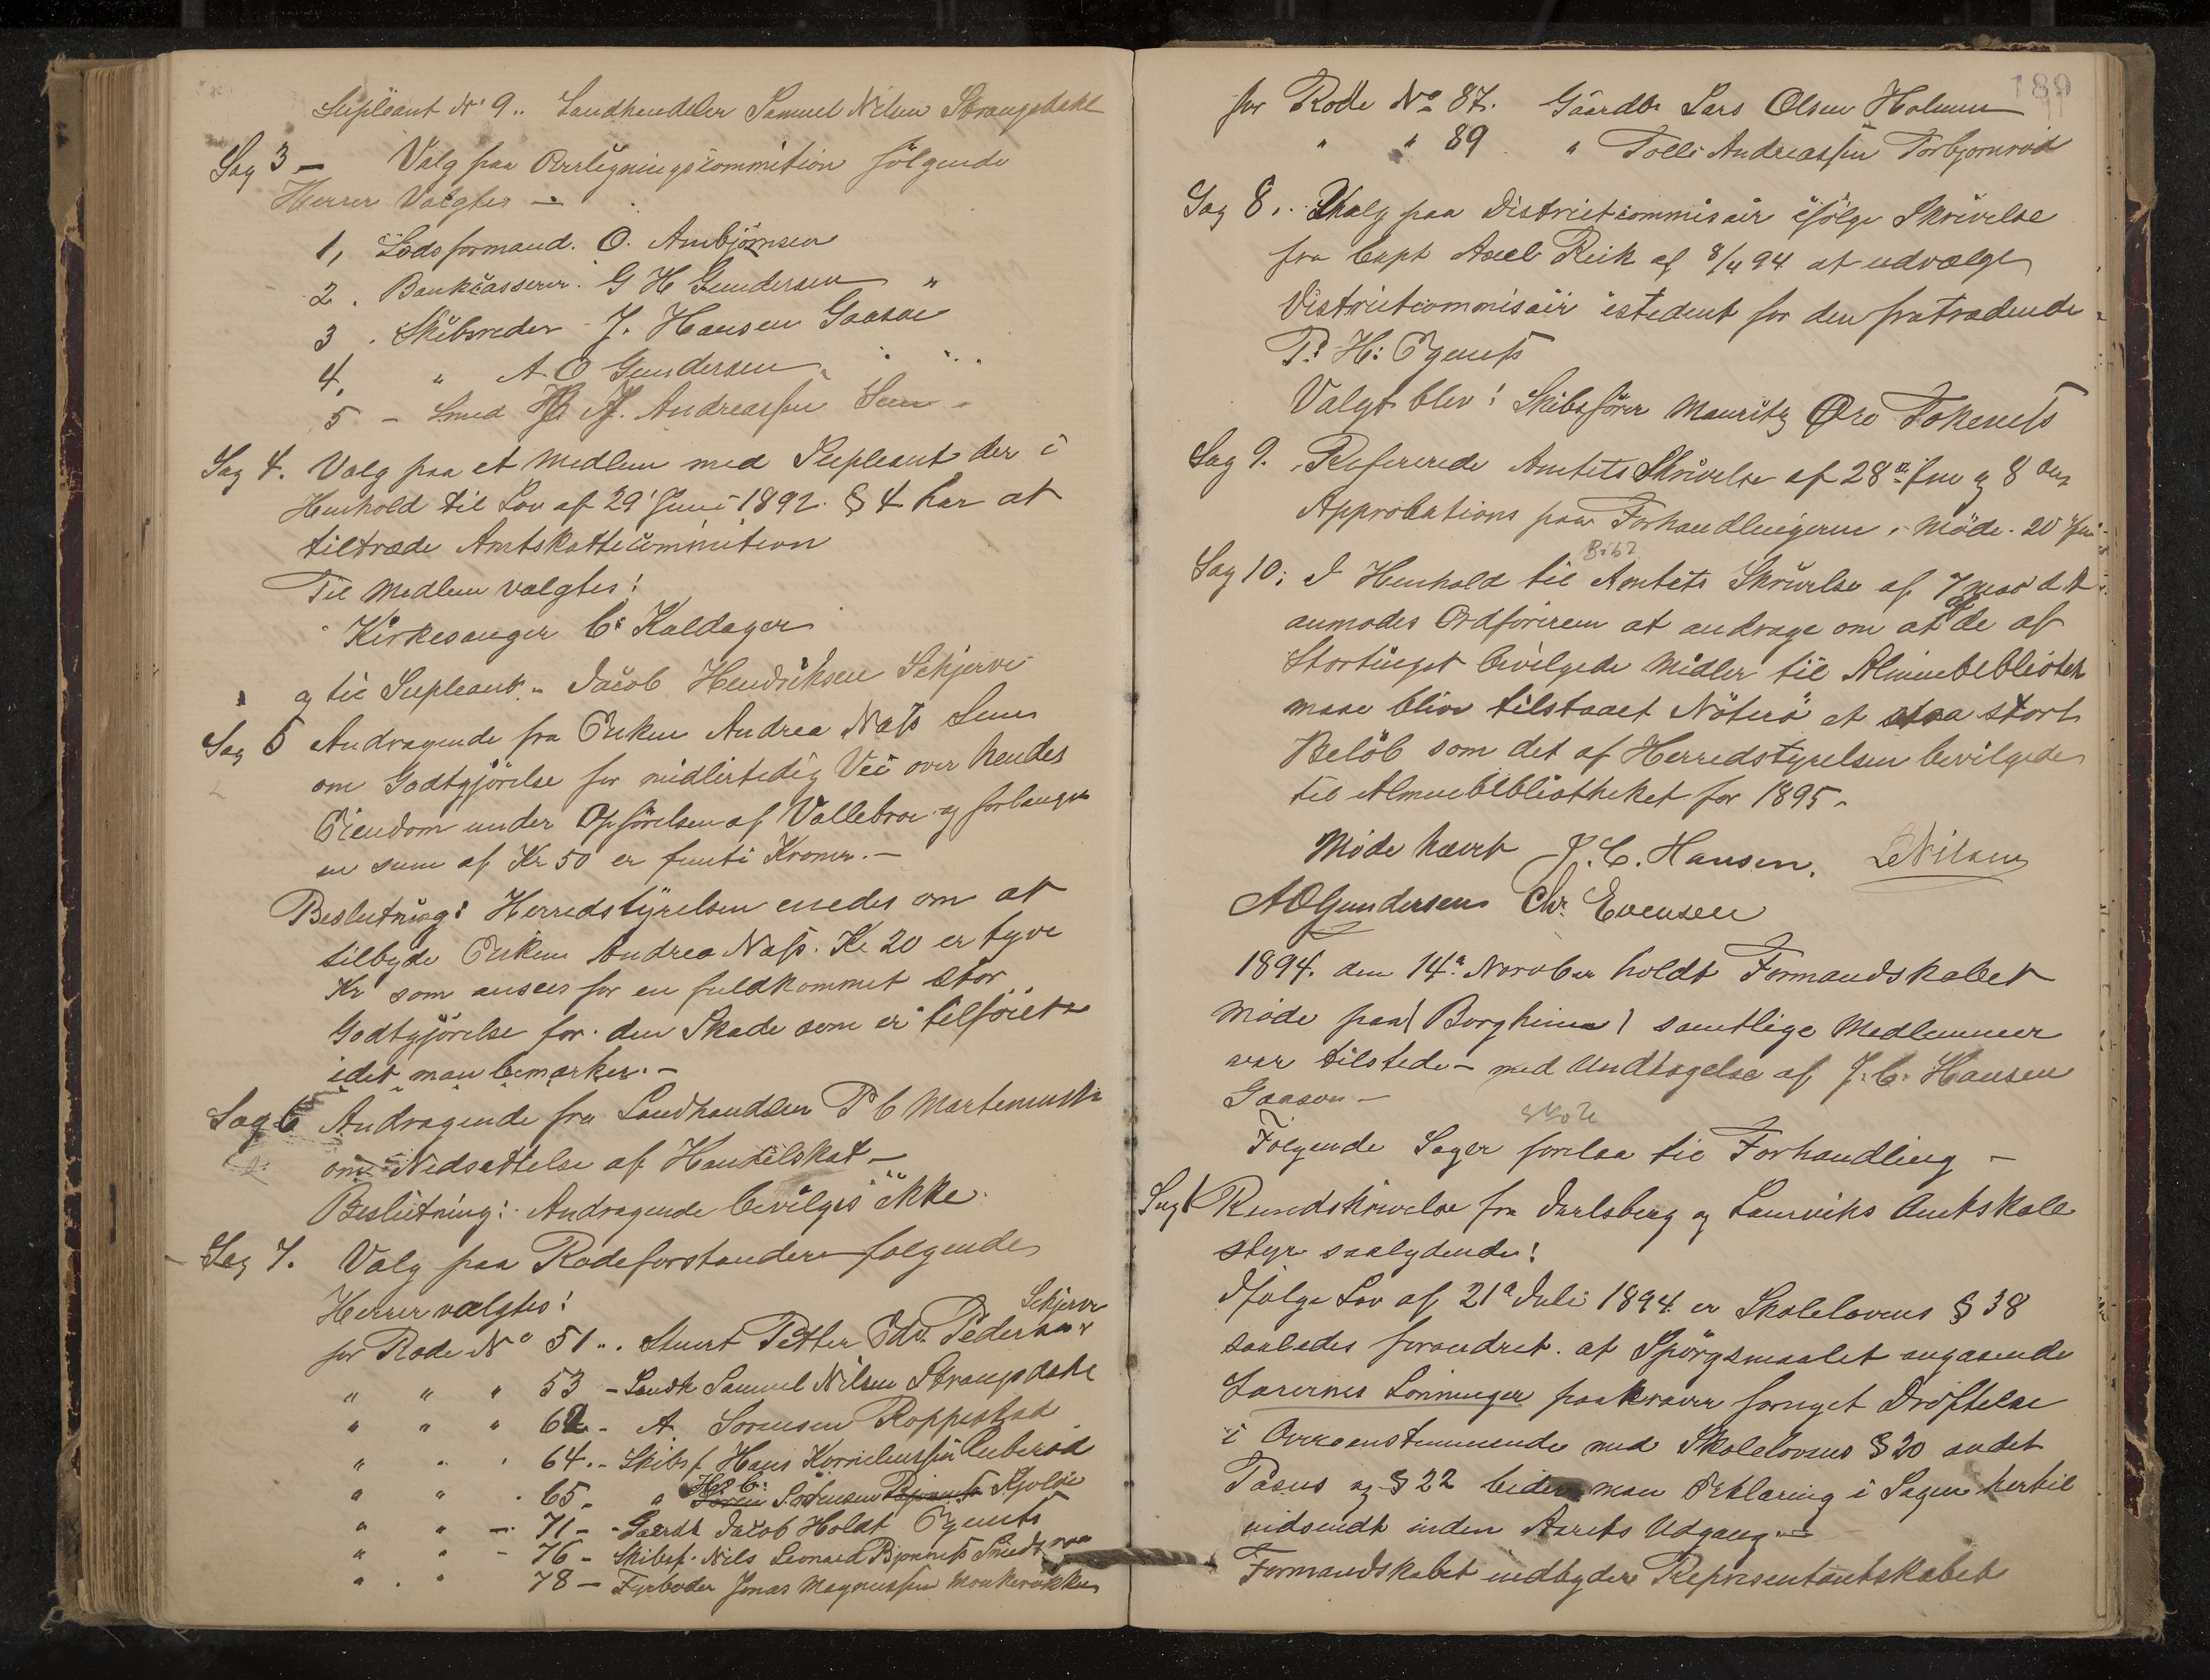 Supleant N: 9.. Landhandeler Samuel Nilsen Strangsdahl
Sag 3 — Valg paa Overligningscommition følgende
Herrer Valgtes —
1, Lodsformand. O. Ambjørnsen
2. Bankcasserer. G H Gundersen "
3. Skibsreder J. Hansen Gaasøe
4. " A. O Gundersen
5 - Smed H. Andreassen Sem -
Sag 4. Valg paa et Medlem med Supleant der i
Henhold til Lov af 29' Juni 1892. § 4 har at
tiltræde Amtskattecommition
Til Medlem valgtes!
Kirkesanger C: Kaldager
og til Supleant " Jacob Hendriksen Skjerve
Sag 5 Andragende fra Enken Andrea Næss Sem
om Godtgjørelse for midlertidig Vei over hendes
Eiendom under Opførelsen af Vollebroe og forlanger
en sum af Kr 50 er femti Kroner. —
Beslutning: Herredstyrelsen enedes om at
tilbyde Enken Andrea Næss. Kr 20 er tyve
Kr som ansees for en fuldkommet stor
Godtgjørelse for den Skade som er tilføiet
idet man bemærker. —
Sag 6 Andragende fra Landhandler P C Martinussen
om Nedsættelse af Handelskat —
Beslutning: Andragende bevilges ikke.
Sag 7. Valg paa Rodeforstandere følgende
Herrer valgtes!
Skjerve
for Rode No 51... Stuert Petter Edv. Pedersen
" " " 53 - Landh Samuel Nilsen Strangsdahl
" " " 62 - A. Sørensen Roppestad
" " " 64. - Skibsf. Hans Korneliussen Buberød
H. C:
" " " 65 - " Søren Sørensen Skjoløe
" " - 71 - Gaardb Jacob Holdt Ogents
" " - 76 - Skibsf. Nils Leonard Bjønness
" " 78 - Fyrbøder Jonas Magnussen Munkerekken
189
for Rode No 87. Gaardbr Lars Olsen Holmen
" " 89 " Tolle Andreassen Torbjørnrød
Sag 8. Valg paa Districtcommisær ifølge Skrivelse
fra Capt Axel Rieck af 8/4 94 at udvælge
Districtcommisær istedent for den fratrædende
P. H: Ogenes
Valgt blev! Skibsfører Mauritz Øre Tokenes
Sag 9. Refererede Amtets Skrivelse af 28de Juni og 8 Aug
Approbations paa Forhandlingerne i Møde 20 Juni
Bibl
Sag 10; I Henhold til Amtets Skrivelse af 7 mai d. A
anmodes Ordføreren at andrage om at de af
Stortinget bevilgede Midler til Almuebibliothek
maae blive tilstaaet Nøterø et saa stort
Beløb som det af Herredstyrelsen bevilgede
til Almuebibliotheket for 1895.
Møde hævet J. C. Hansen. L Nilsen
A O Gundersen Chr. Evensen
1894. den 14de November holdt Formandskabet
møde paa (Borgheim) samtlige Medlemmer
var tilstede - med Undtagelse af J. C. Hansen
Gaasøe. —
Skole
Følgende Sager forelaa til Forhandling —
Sag 1 Rundskrivelse fra Jarlsberg og Laurviks Amtskole
styr saalydende!
Ifølge Lov af 21de Juli 1894 er Skolelovens § 38
saaledes forandret. at Spørgsmaalet angaaende
Lærernes Lønninger paakræver fornyet Drøftelse
i Overensstemmende med Skolelovens § 20 andet
Pasus og § 22 beder man Erklæring i Sagen hertil
indsendt inden Aarets Udgang. —
Formandskabet indbyder Representantskabet